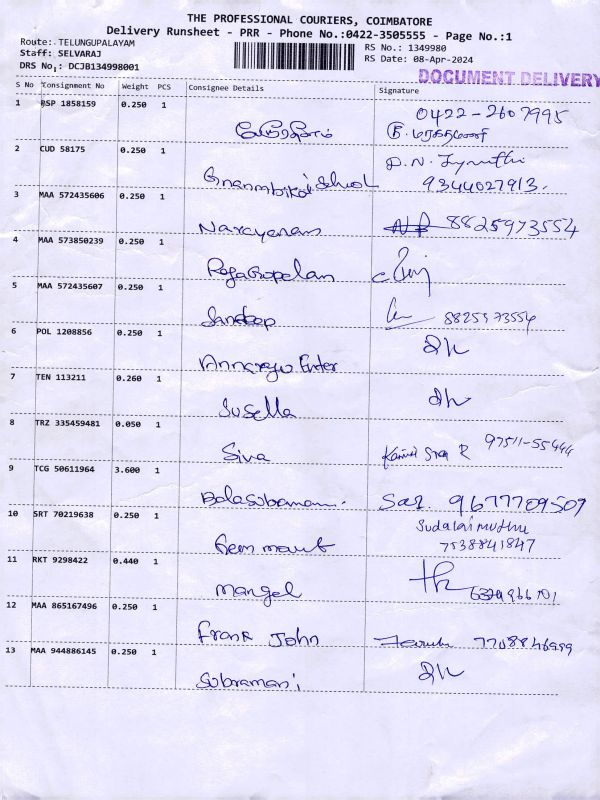 THE PROFESSIONAL COURIERS, COIMBATORE
Delivery Runsheet - PRR - Phone No.:0422-3505555 - Page No.:1
Route: TELUNGUPALAYAM
Staff: SELVARAJ
DRS No: DCJB134998001
RS No.: 1349980
RS Date: 08-Apr-2024
DOCUMENT DELIVERY
S No Consignment No Weight PCS Consignee Details Signature
1 BSP 1858159 0.250 1 0422-2607995
2 CUD 58175 0.250 1 D.N.
Gnanambikai School 9344027913.
3 MAA 572435606 0.250 1
Narayanan 8825973554
4 MAA 573850239 0.250 1
RajaGopalan
5 MAA 572435607 0.250 1
Sandeep 8825973554
6 POL 1208856 0.250 1
Enter
7 TEN 113211 0.260 1
Susella
8 TRZ 335459481 0.050 1
Siva R 97511-55444
9 TCG 50611964 3.600 1
Balasubamani. Sar. 9677709509
10 SRT 70219638 0.250 1 Sudalaimuthu
7538841847
11 RKT 9298422 0.440 1
mangel
12 MAA 865167496 0.250 1
Frank John
13 MAA 944886145 0.250 1
Subramani